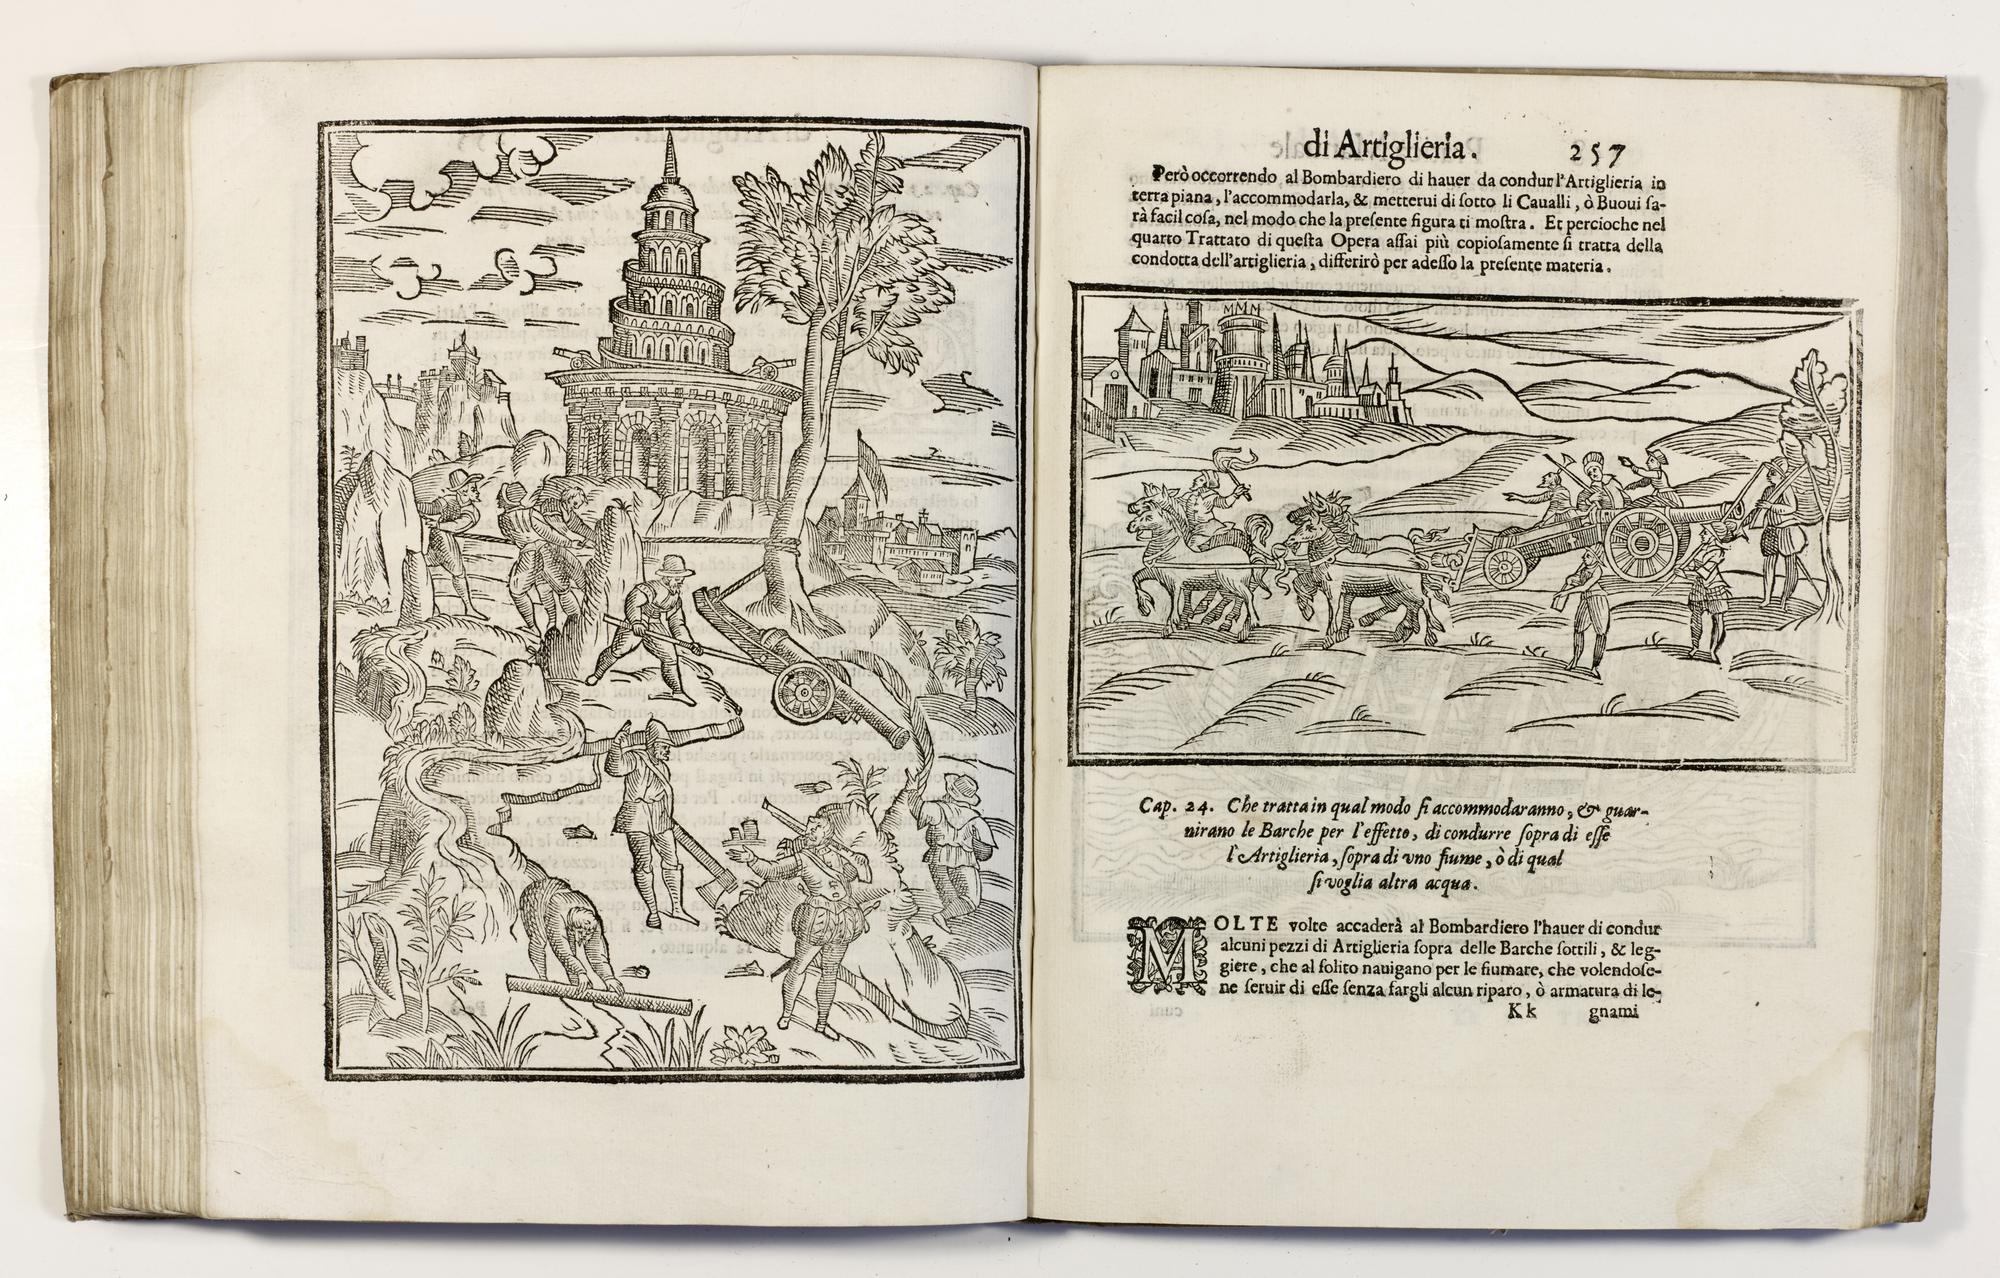 di Artiglieria. 257
Però occorrendo al Bombardiero di hauer da condur l'Artiglieria in
terra piana, l'accommodarla, & metterui di sotto li Caualli, ò Buoui sa-
rà facil cosa, nel modo che la presente figura ti mostra. Et percioche nel
quarto Trattato di questa Opera assai più copiosamente si tratta della
condotta dell'artiglieria, differirò per adesso la presente materia.
Cap. 24. Che tratta in qual modo si accommodaranno, & guar-
nirano le Barche per l'effetto, di condurre sopra di esse
l'Artiglieria, sopra di vno fiume, ò di qual
si voglia altra acqua.
MOLTE volte accaderà al Bombardiero l'hauer di condur
alcuni pezzi di Artiglieria sopra delle Barche sottili, & leg-
giere, che al solito nauigano per le fiumare, che volendose-
ne seruir di esse senza fargli alcun riparo, ò armatura di le-
Kk gnami